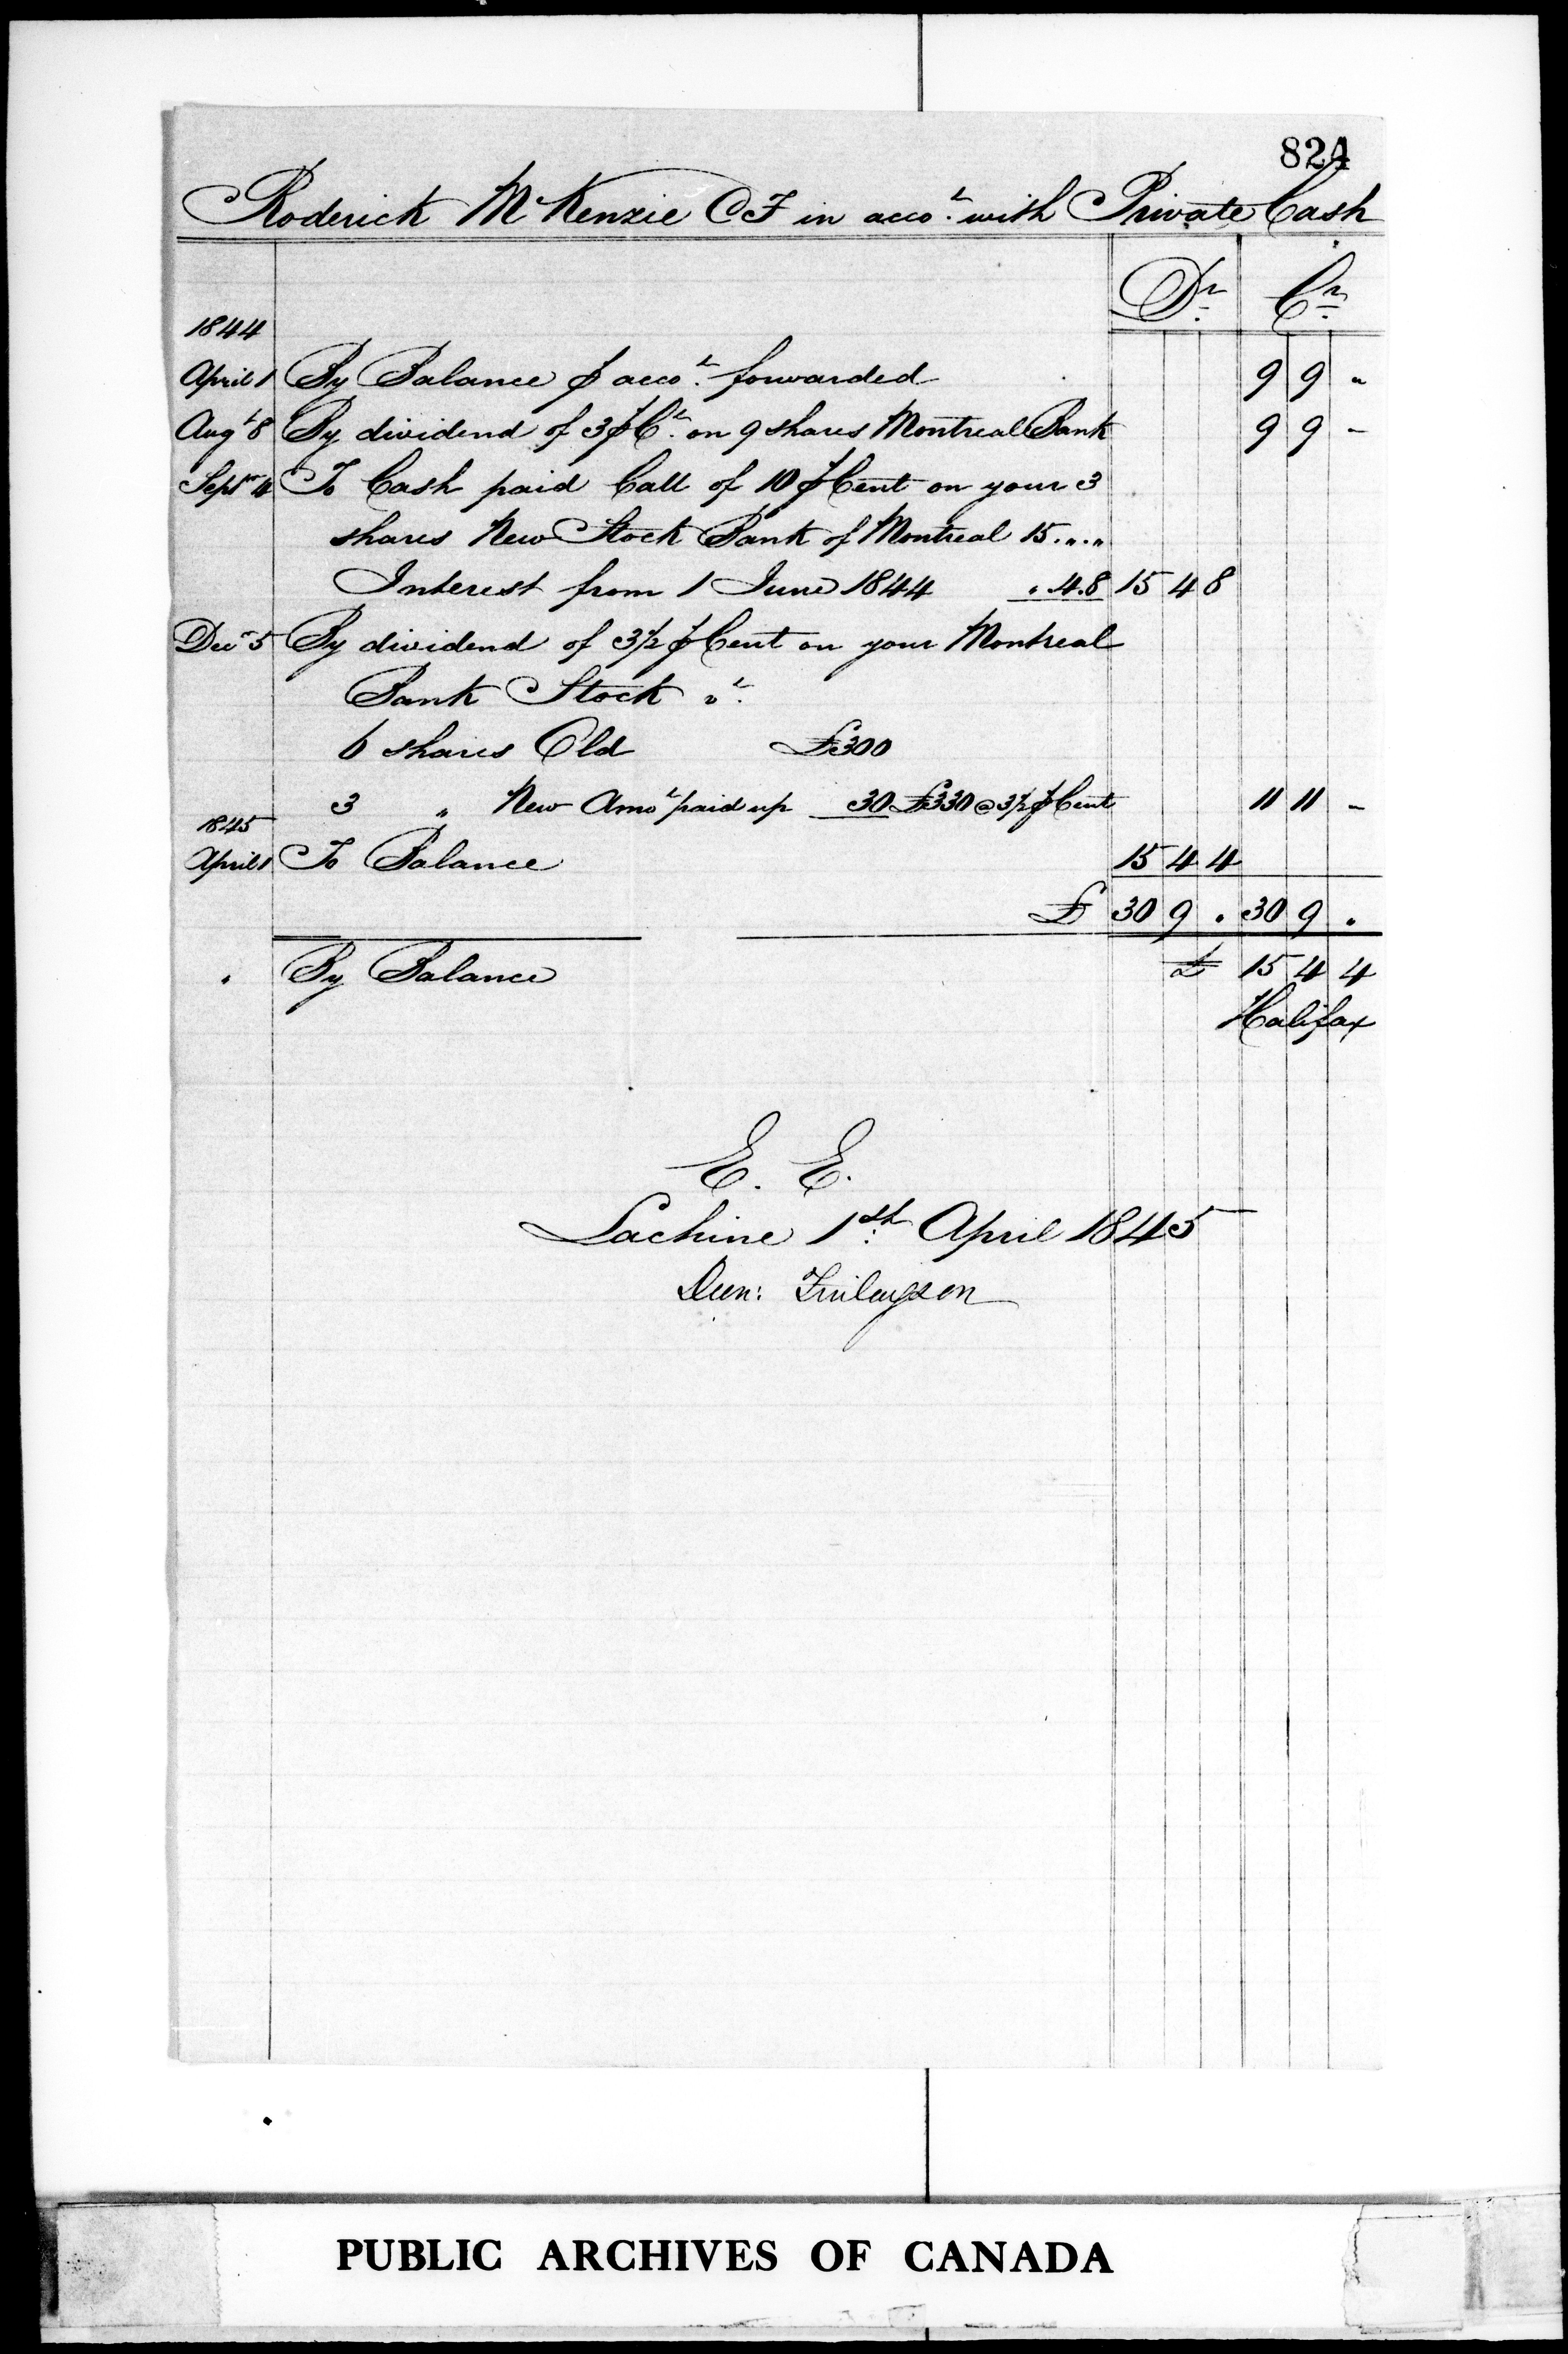 824
Roderick McKenzie CF in acco.t with Private Cash
Dr. Cr.
1844
April 1 By Balance ⅌ acco.t forwarded 9 9 "
Augt 8 By dividend of 3 ⅌ Ct. on 9 shares Montreal Bank 9 9 -
Septr 4 To Cash paid Call of 10 ⅌ Cent on your 3
shares New Stock Bank of Montreal 15 . " . "
Interest from 1 June 1844 " . 4.8 15 4 8
Decr 5 By dividend of 3½ ⅌ Cent on your Montreal
Bank Stock
6 shares Old £300
3 " New Amot paid up 30 £330 @ 3½ ⅌ Cent 11 11 -
1845
April 1 To Balance 15 4 4
£ 30 9 " 30 9 "
" By Balance £ 15 4 4
Halifax
E. E.
Lachine 1st April 1845
Dun: Finlayson
PUBLIC ARCHIVES OF CANADA